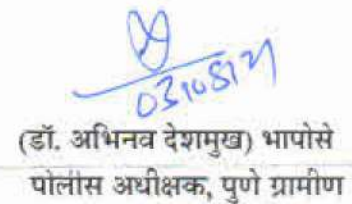 03/05/21
(डॉ. अभिनव देशमुख) भापोसे
पोलीस अधीक्षक, पुणे ग्रामीण